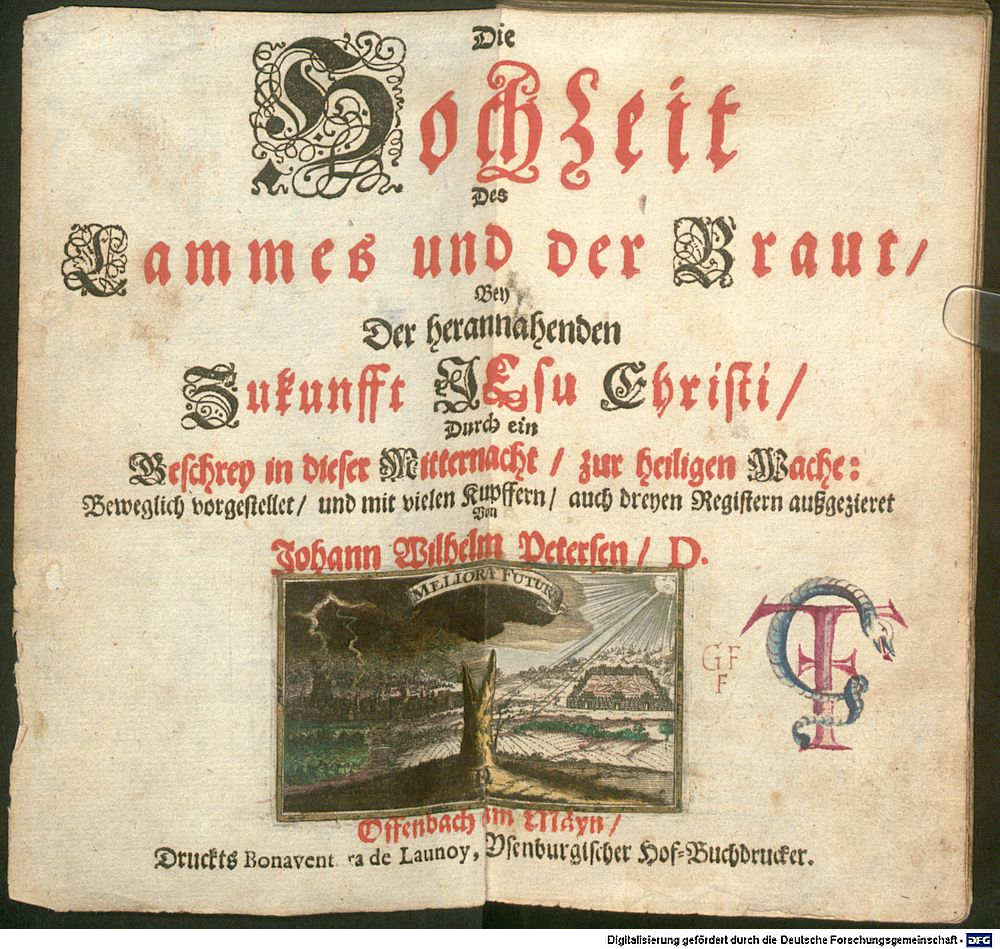 Die
Hochzeit
Des
Lammes und der Braut/
Bey
Der herannahenden
Zukunfft JEsu Christi/
Durch ein
Geschrey in dieser Mitternacht/ zur heiligen Wache:
Beweglich vorgestellet/ und mit vielen Kupffern/ auch dreyen Registern außgezieret
Von
Johann Wilhelm Petersen/ D.
MELIORA FUTURA
GF
F
Offenbach am Mäyn/
Druckts Bonaventura de Launoy, Ysenburgischer Hof-Buchdrucker.
Digitalisierung gefördert durch die Deutsche Forschungsgemeinschaft - DFG